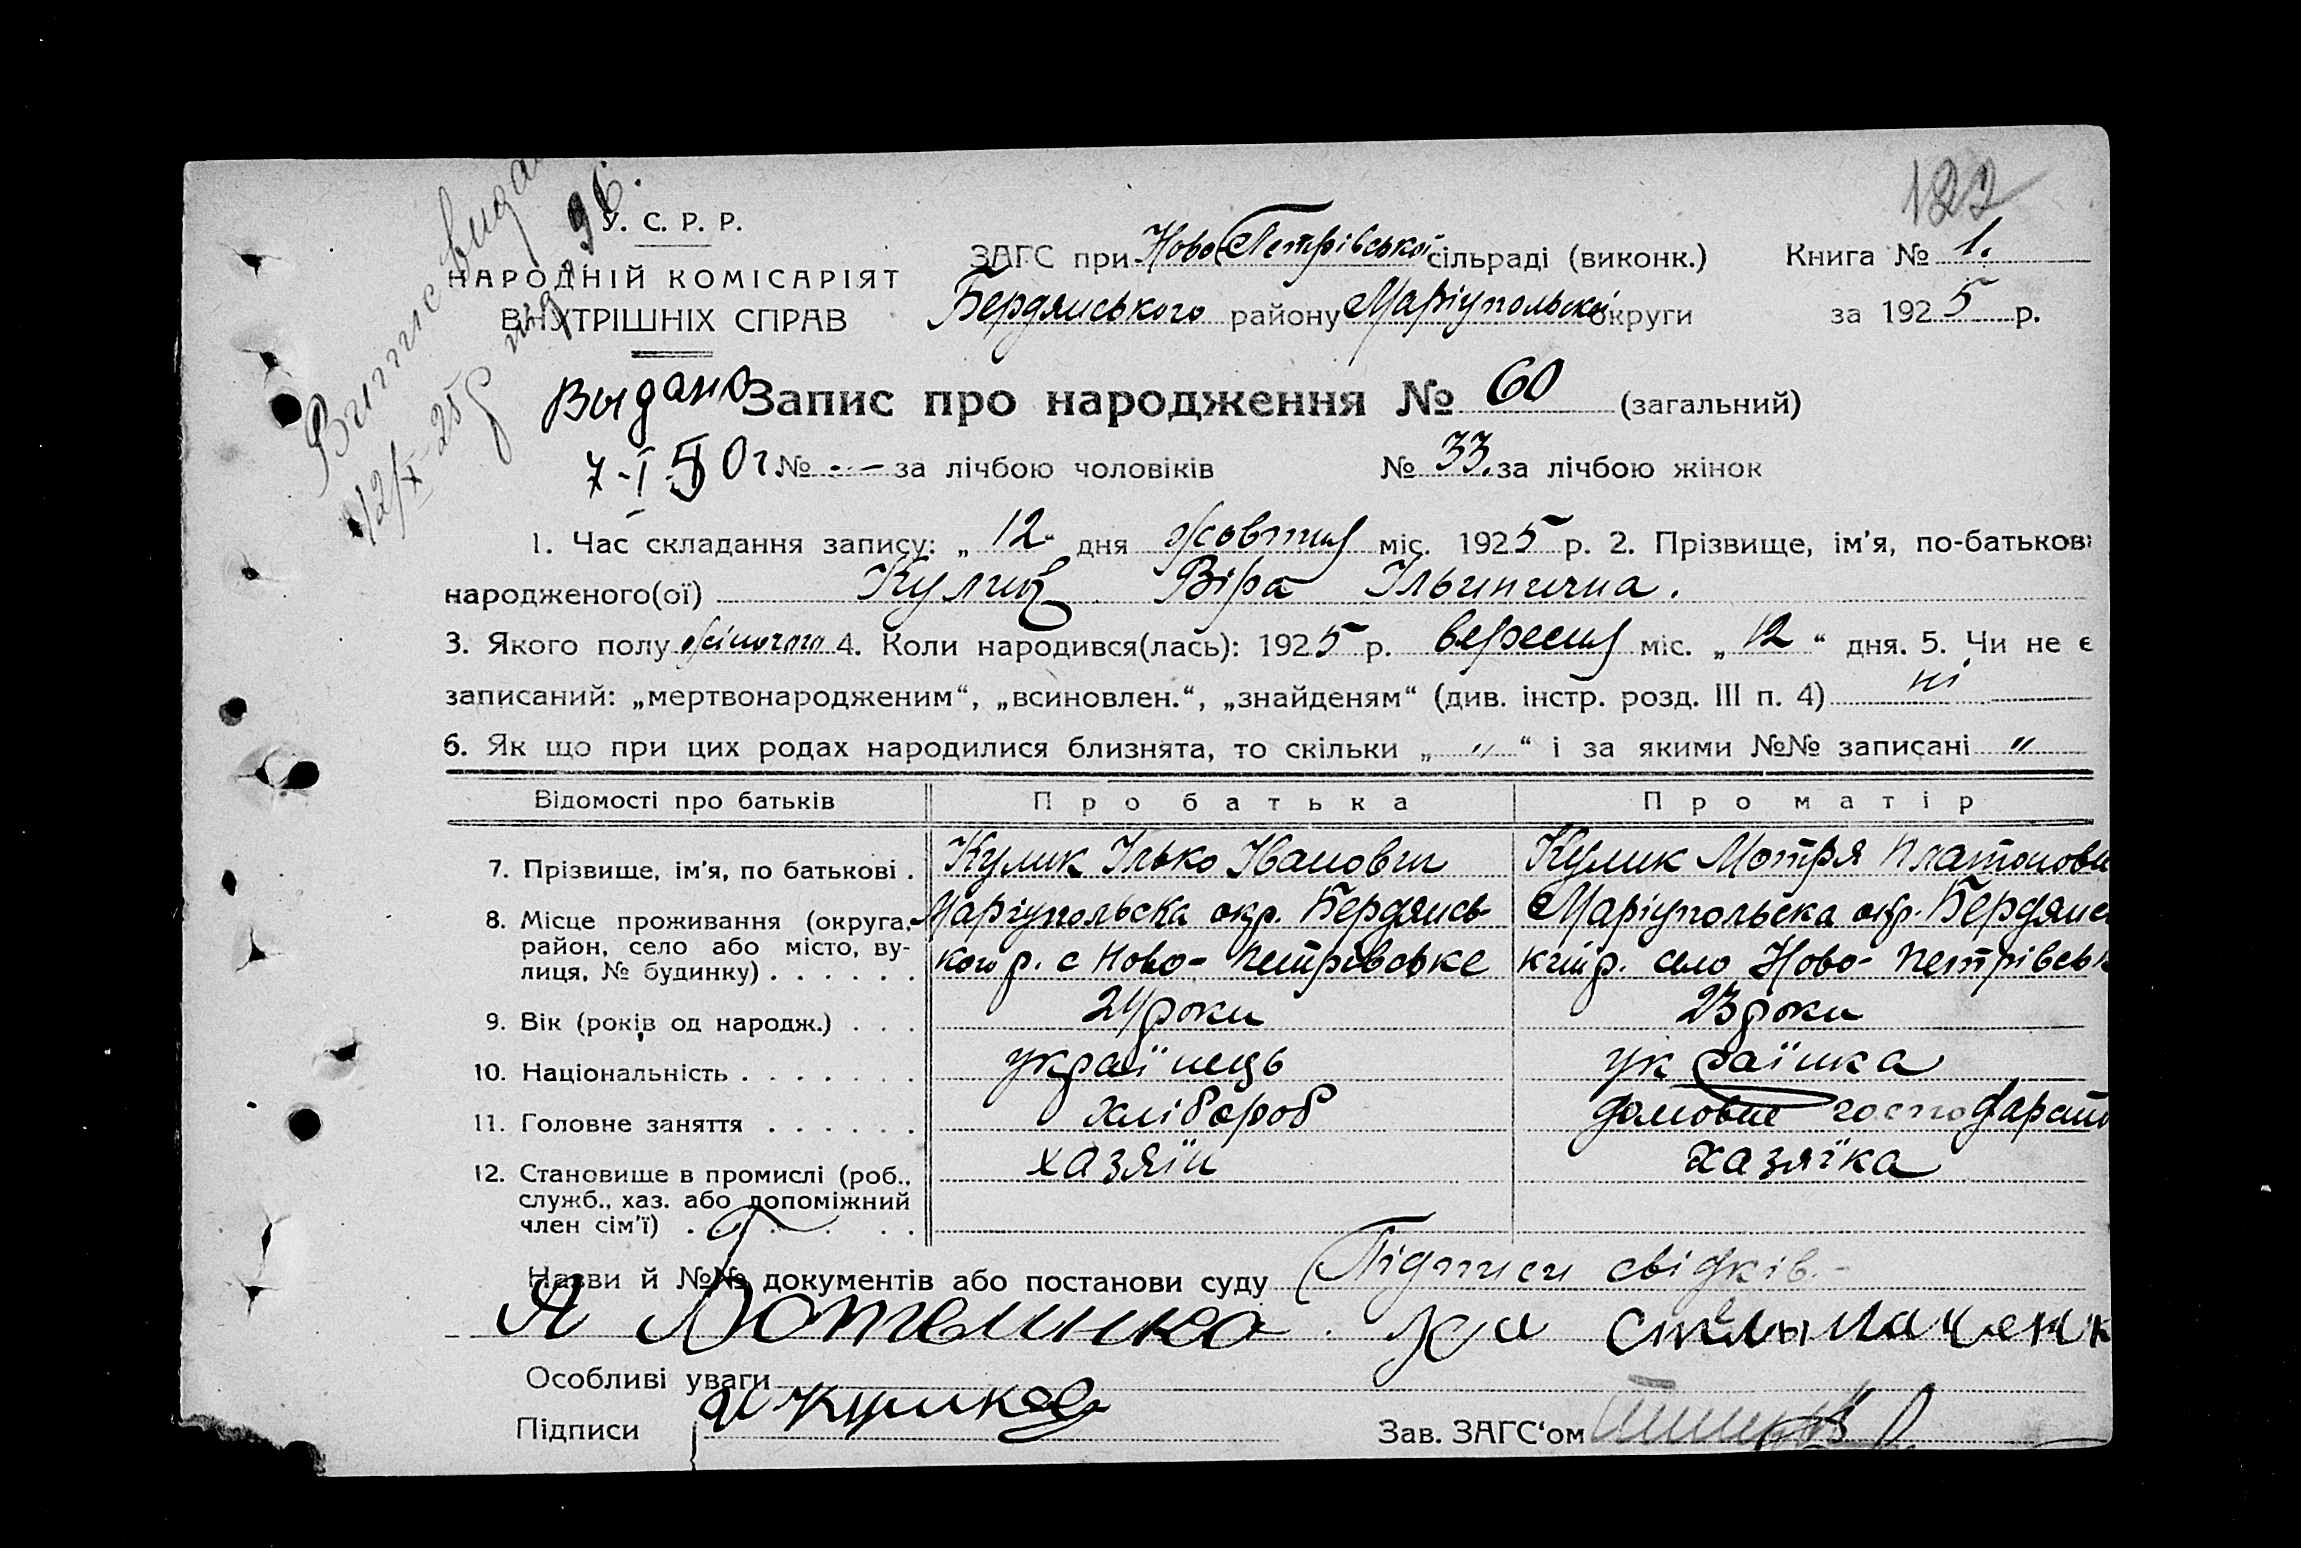 122
Випис видан
12/X-25р
У. С. Р. Р.
НАРОДНІЙ КОМІСАРІЯТ
ВНУТРІШНІХ СПРАВ
ЗАГС при Ново Петрівської сільраді (виконк.) Книга № 1.
Бердянського району Маріупольскої округи за 1925 р.
Выдано
Запис про народження № 60 (загальний)
7-I 50г
№ - - за лічбою чоловіків № 33. за лічбою жінок
1. Час складання запису: „ 12 “ дня жовтня міс. 1925 р. 2. Прізвище, ім’я, по-батькові
народженого(ої) Кулик Віра Ільинична.
3. Якого полу жіночого 4. Коли народився(лась): 1925 р. вересня міс. „ 12 “ дня. 5. Чи не є
записаний: „мертвонародженим“, „всиновлен.“, „знайденям“ (див. інстр. розд. III п. 4) ні
6. Як що при цих родах народилися близнята, то скільки „ „ “ і за якими №№ записані „
Відомості про батьків Про батька Про матір
7. Прізвище, ім’я, по батькові . Кулик Ілько Іванович Кулик Мотря Платонови
8. Місце проживання (округа, район, село або місто, вулиця, № будинку) . . . . . .
Маріупольска окр. Бердянсь- Маріупольска окр. Бердянс
кого р. с Ново-Петрівське кий р. село Ново-Петрівськ
9. Вік (років од народж.) . . . 24 роки 23 роки
10. Національність . . . . . . . українець українка
11. Головне заняття . . . . . . хлібороб домовне господарств
12. Становище в промислі (роб., хазяїн хазяїка
служб., хаз. або допоміжний
член сім’ї) . . . . . .
Назви й №№ документів або постанови суду Підписи свідків.-
Я
Особливі уваги
Підписи
Зав. ЗАГС‘ом